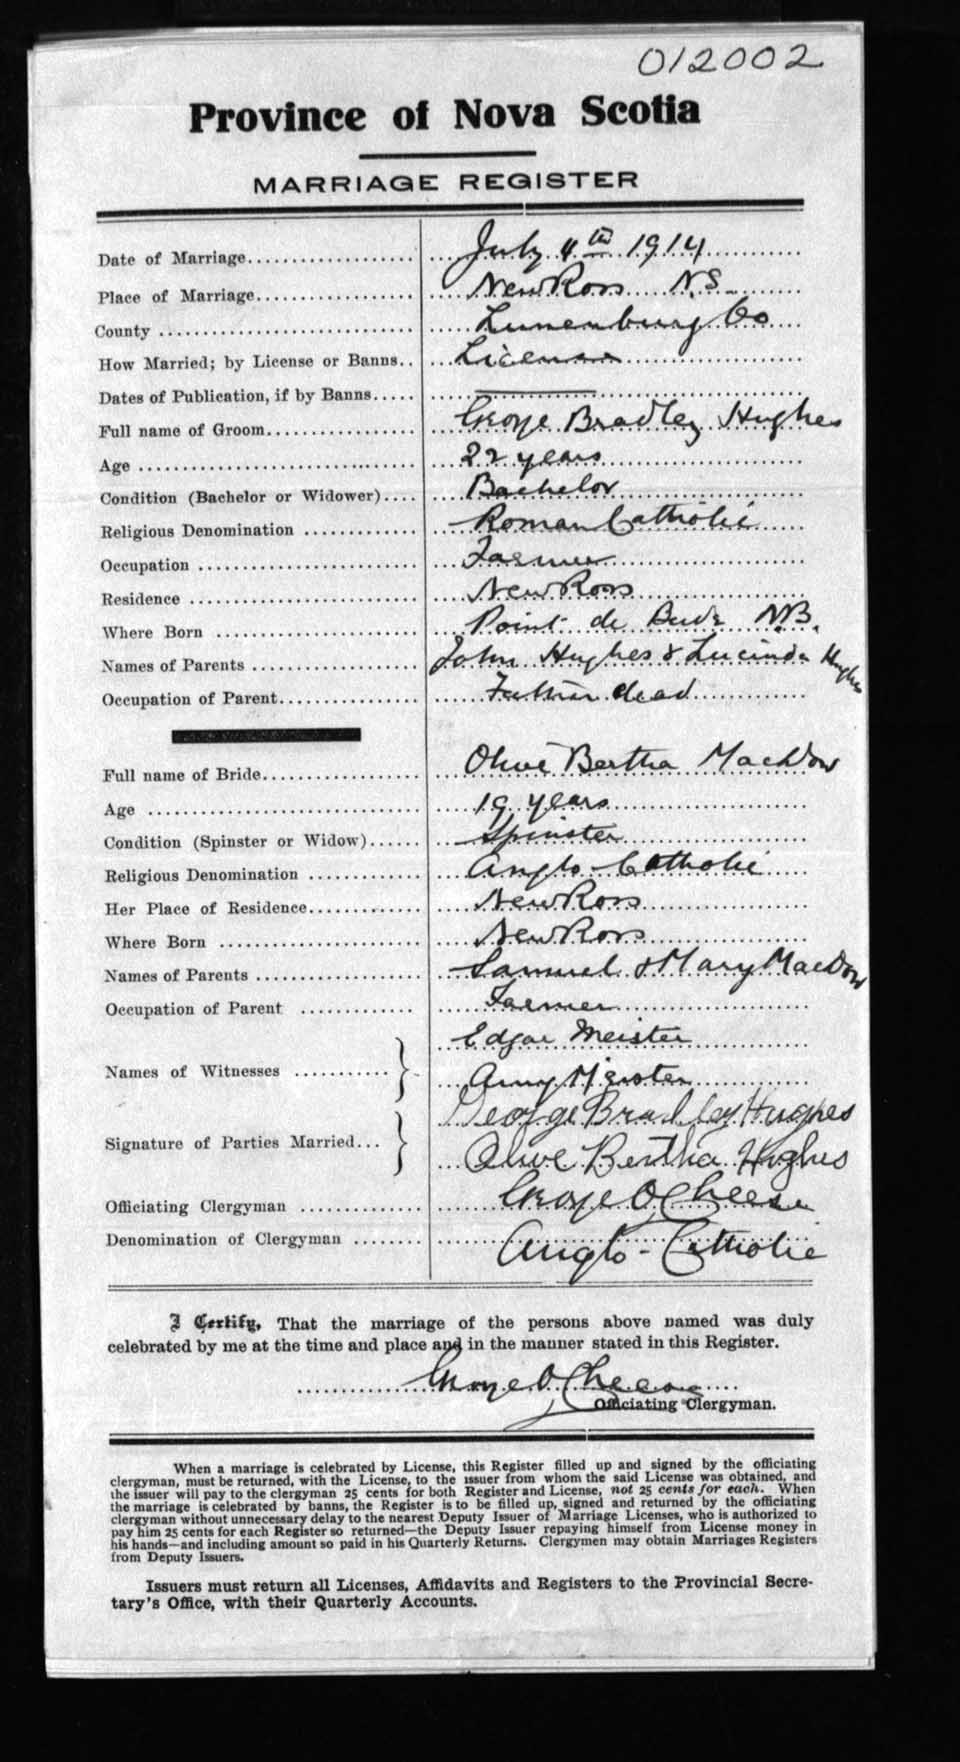 012002
Province of Nova Scotia
MARRIAGE REGISTER
Date of Marriage.................... July 4th 1914
Place of Marriage................... New Ross N.S.
County .............................. Lunenburg Co
How Married; by License or Banns.. License
Dates of Publication, if by Banns.....
Full name of Groom.................. George Bradley Hughes
Age .................................. 22 years
Condition (Bachelor or Widower).... Bachelor
Religious Denomination ............. Roman Catholic
Occupation .......................... Farmer
Residence ........................... New Ross
Where Born ........................ Point de Bude N.B.
Names of Parents .................... John Hughes & Lucinda Hughes
Occupation of Parent................. Father dead
Full name of Bride................... Olive Bertha MacDow
Age ................................. 19 years
Condition (Spinster or Widow)...... Spinster
Religious Denomination ............. Anglo-Catholic
Her Place of Residence.............. New Ross
Where Born ........................ New Ross
Names of Parents .................... Samuel & Mary MacDow
Occupation of Parent ............. Farmer
Edgar Meister
Names of Witnesses ...........
Amy Meister
George Bradley Hughes
Signature of Parties Married...
Olive Bertha Hughes
Officiating Clergyman ............. George O Cheese
Denomination of Clergyman ........ Anglo-Catholic
I Certify, That the marriage of the persons above named was duly
celebrated by me at the time and place and in the manner stated in this Register.
George O Cheese
Officiating Clergyman.
When a marriage is celebrated by License, this Register filled up and signed by the officiating
clergyman, must be returned, with the License, to the issuer from whom the said License was obtained, and
the issuer will pay to the clergyman 25 cents for both Register and License, not 25 cents for each. When
the marriage is celebrated by banns, the Register is to be filled up, signed and returned by the officiating
clergyman without unnecessary delay to the nearest Deputy Issuer of Marriage Licenses, who is authorized to
pay him 25 cents for each Register so returned—the Deputy Issuer repaying himself from License money in
his hands—and including amount so paid in his Quarterly Returns. Clergymen may obtain Marriages Registers
from Deputy Issuers.
Issuers must return all Licenses, Affidavits and Registers to the Provincial Secre-
tary's Office, with their Quarterly Accounts.